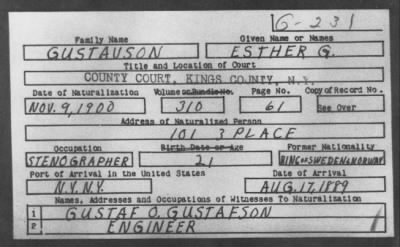 G-231
Family Name Given Name or Names
GUSTAVSON ESTHER G.
Title and Location of Court
COUNTY COURT, KINGS COUNTY, N.Y.
Date of Naturalization Volume or Bundle No. Page No. Copy of Record No.
NOV. 9, 1900 310 61 See Over
Address of Naturalized Person
101 3 PLACE
Occupation Birth Date or Age Former Nationality
STENOGRAPHER 21 KING OF SWEDEN & NORWAY
Port of Arrival in the United States Date of Arrival
N.Y. N.Y. AUG. 17, 1889
Names, Addresses and Occupations of Witnesses To Naturalization
1 GUSTAF O. GUSTAFSON
2 ENGINEER